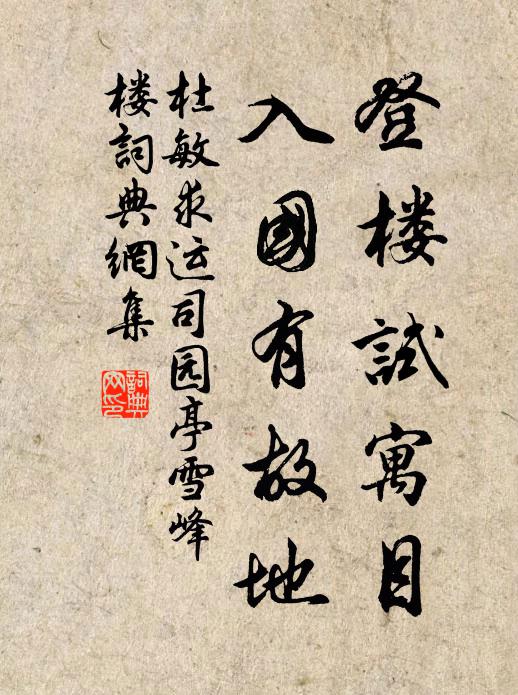 登楼試寓目
入國有故地
杜敏求运司园亭雪峰
楼詞典網集
詞典网印